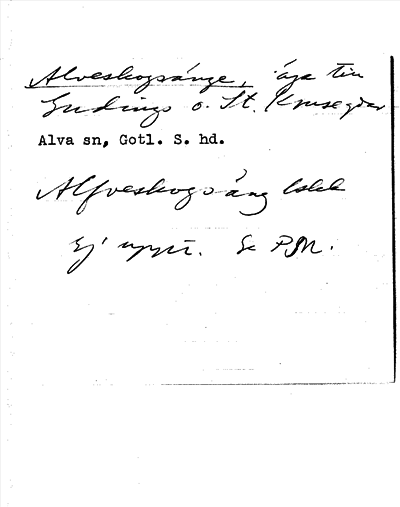 Alveskogsänge, äga till
Gudings o. St. Krusegdar
Alva sn, Gotl. S. hd.
Alfveskogsäng
Ej uppt. Se PSM.